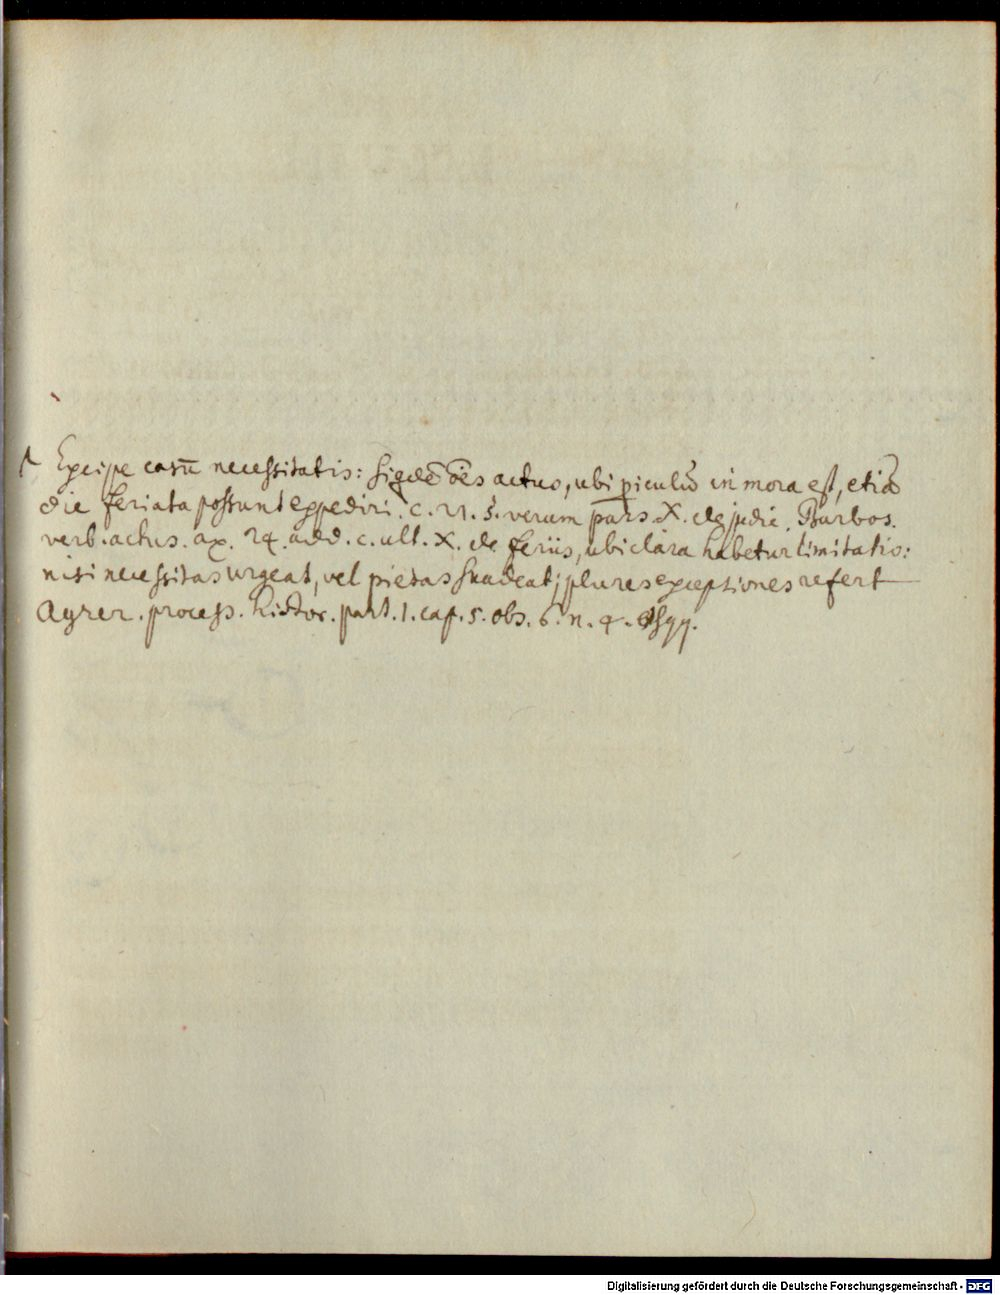 Excipe casū necessitatis: siqdē oēs actus, ubi piculū in mora est, etiā
die feriata possunt expediri. c. 21. §. verum pars. X. de judic. Barbos.
verb. actus. ax. 24. add. c. ult. X. de feriis, ubi clara habetur limitatio:
nisi necessitas urgeat, vel pietas suadeat; plures exceptiones refert
Ayrer. process. histor. part. 1. cap. 5. obs. 6. n. 4. sqq.
Digitalisierung gefördert durch die Deutsche Forschungsgemeinschaft - DFG